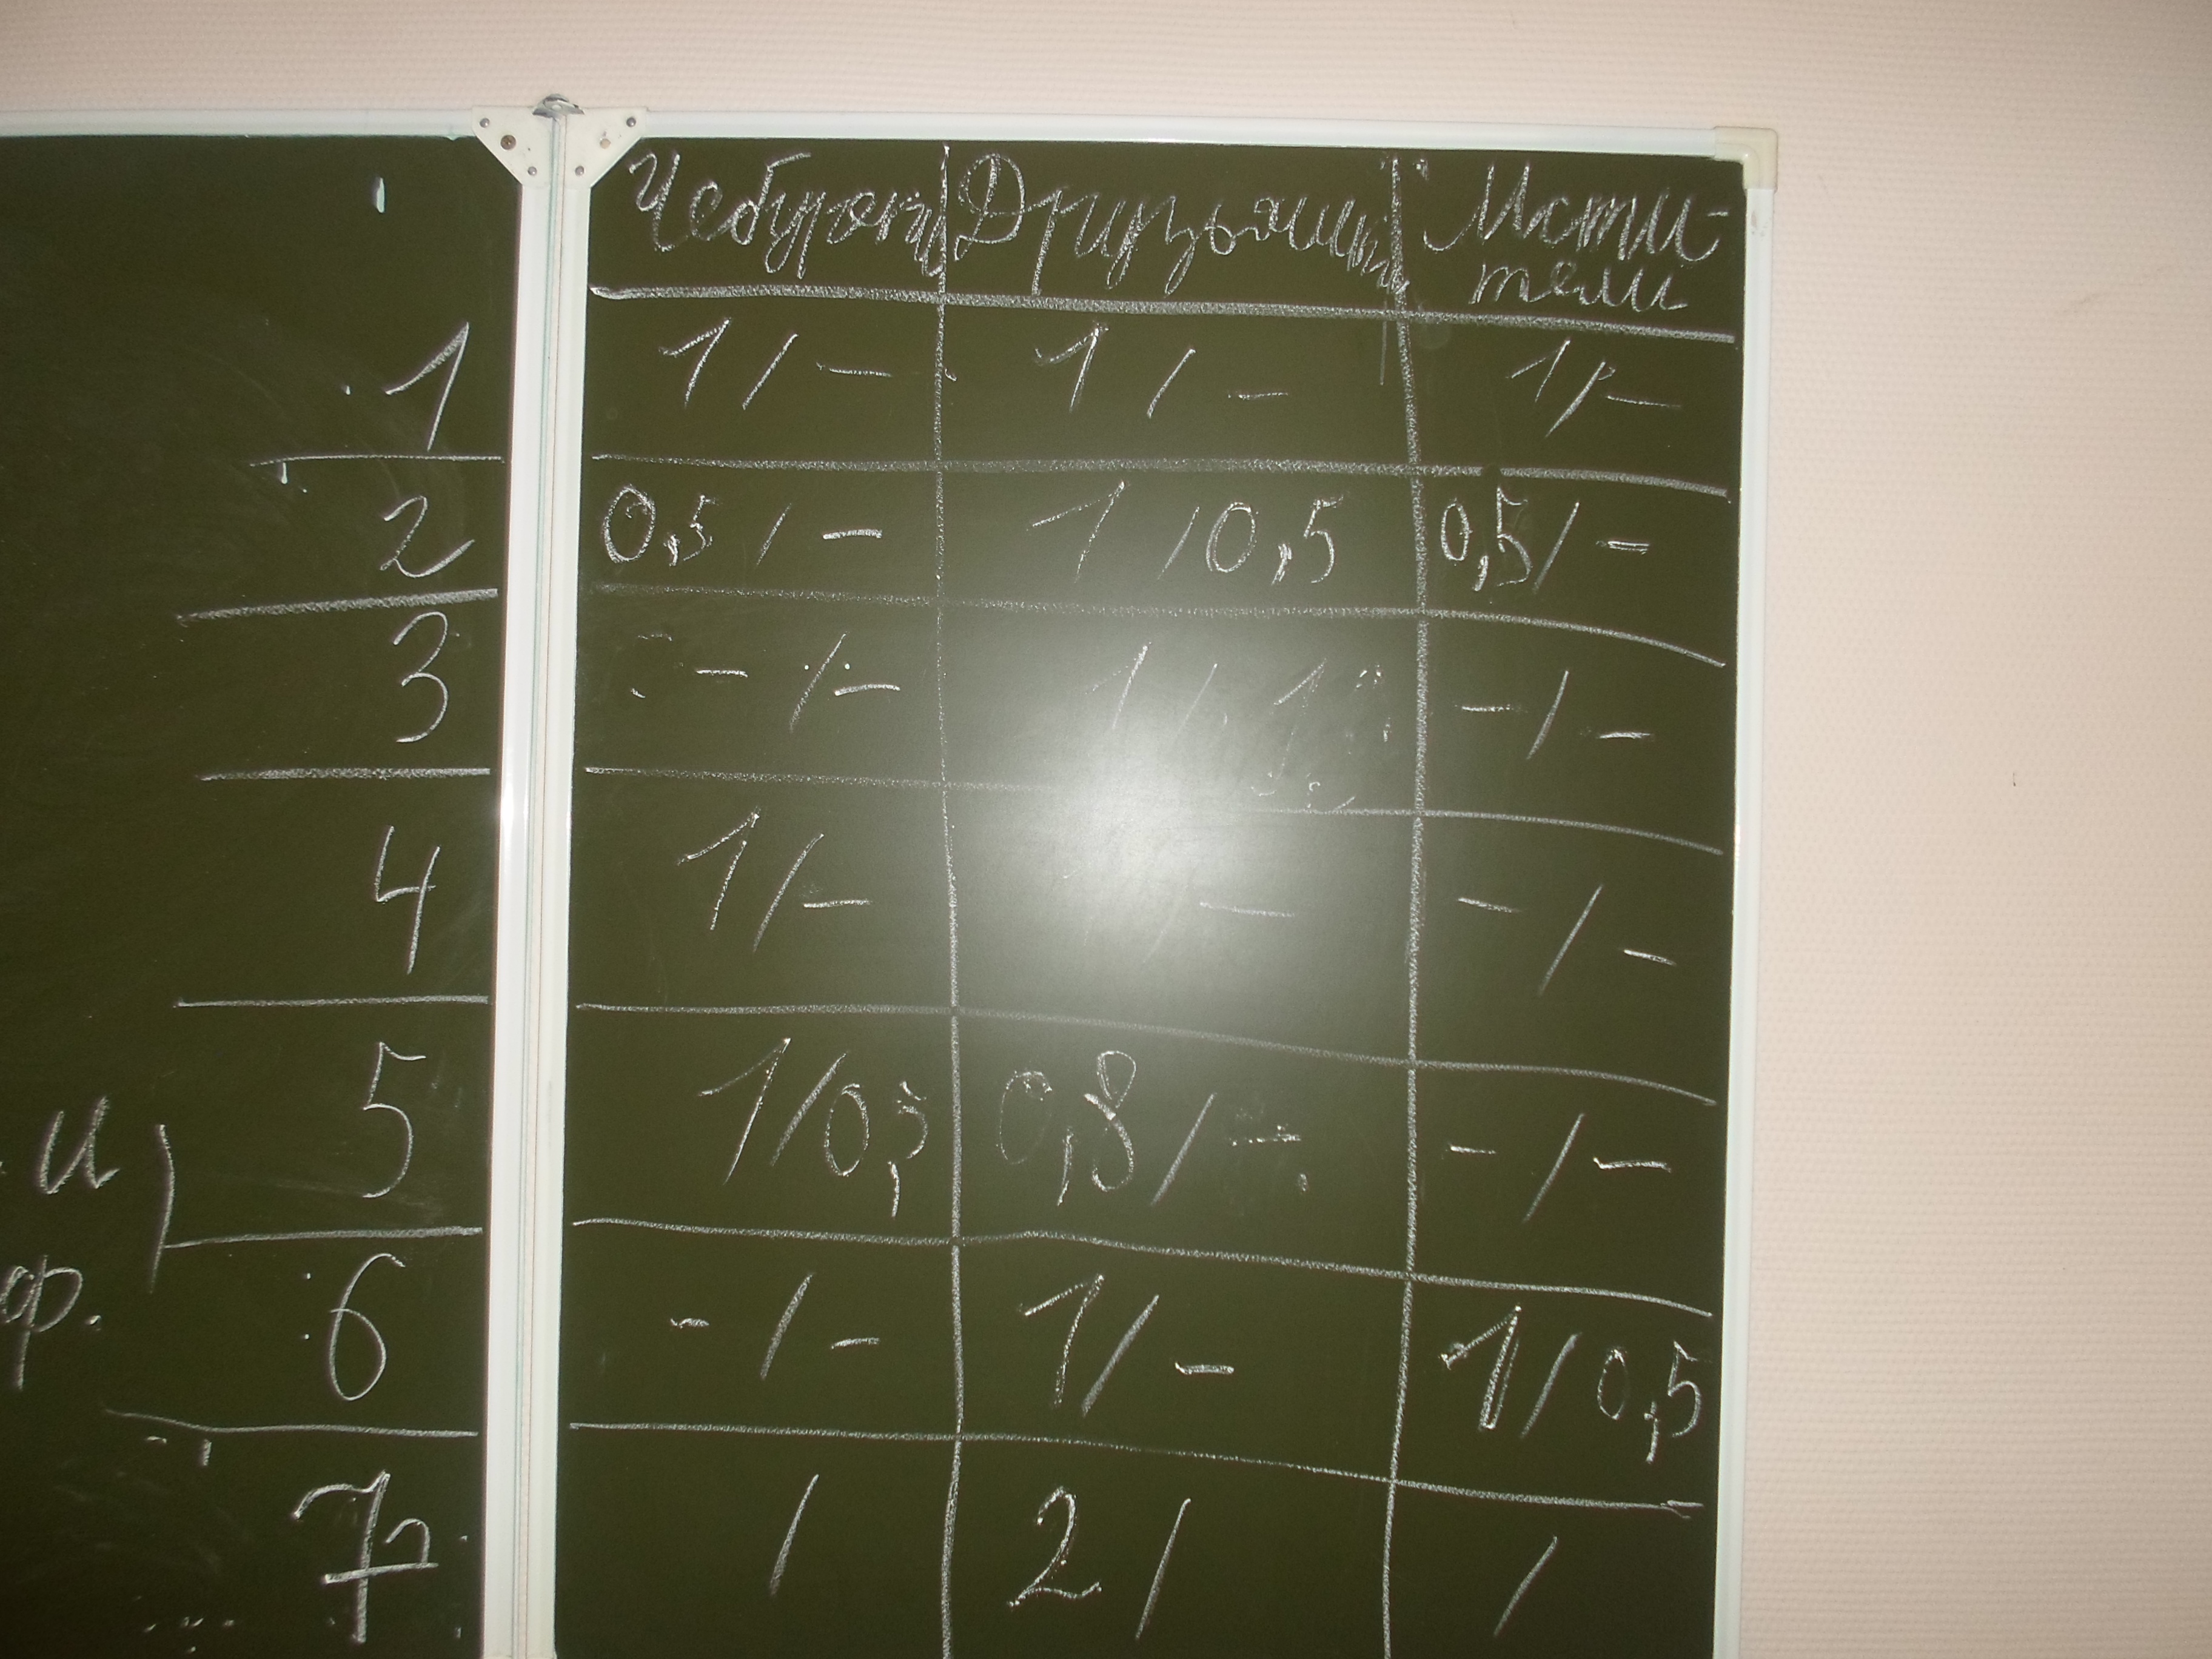 Чебуреки Друзьяшки Мсти-
тели
1 1/- 1/- 1/-
2 0,5/- 1/0,5 0,5/-
3 -/- 1/1 -/-
4 1/- - -/-
и 5 1/0,5 0,8/- -/-
ф. 6 -/- 1/- 1/0,5
7 / 2/ /